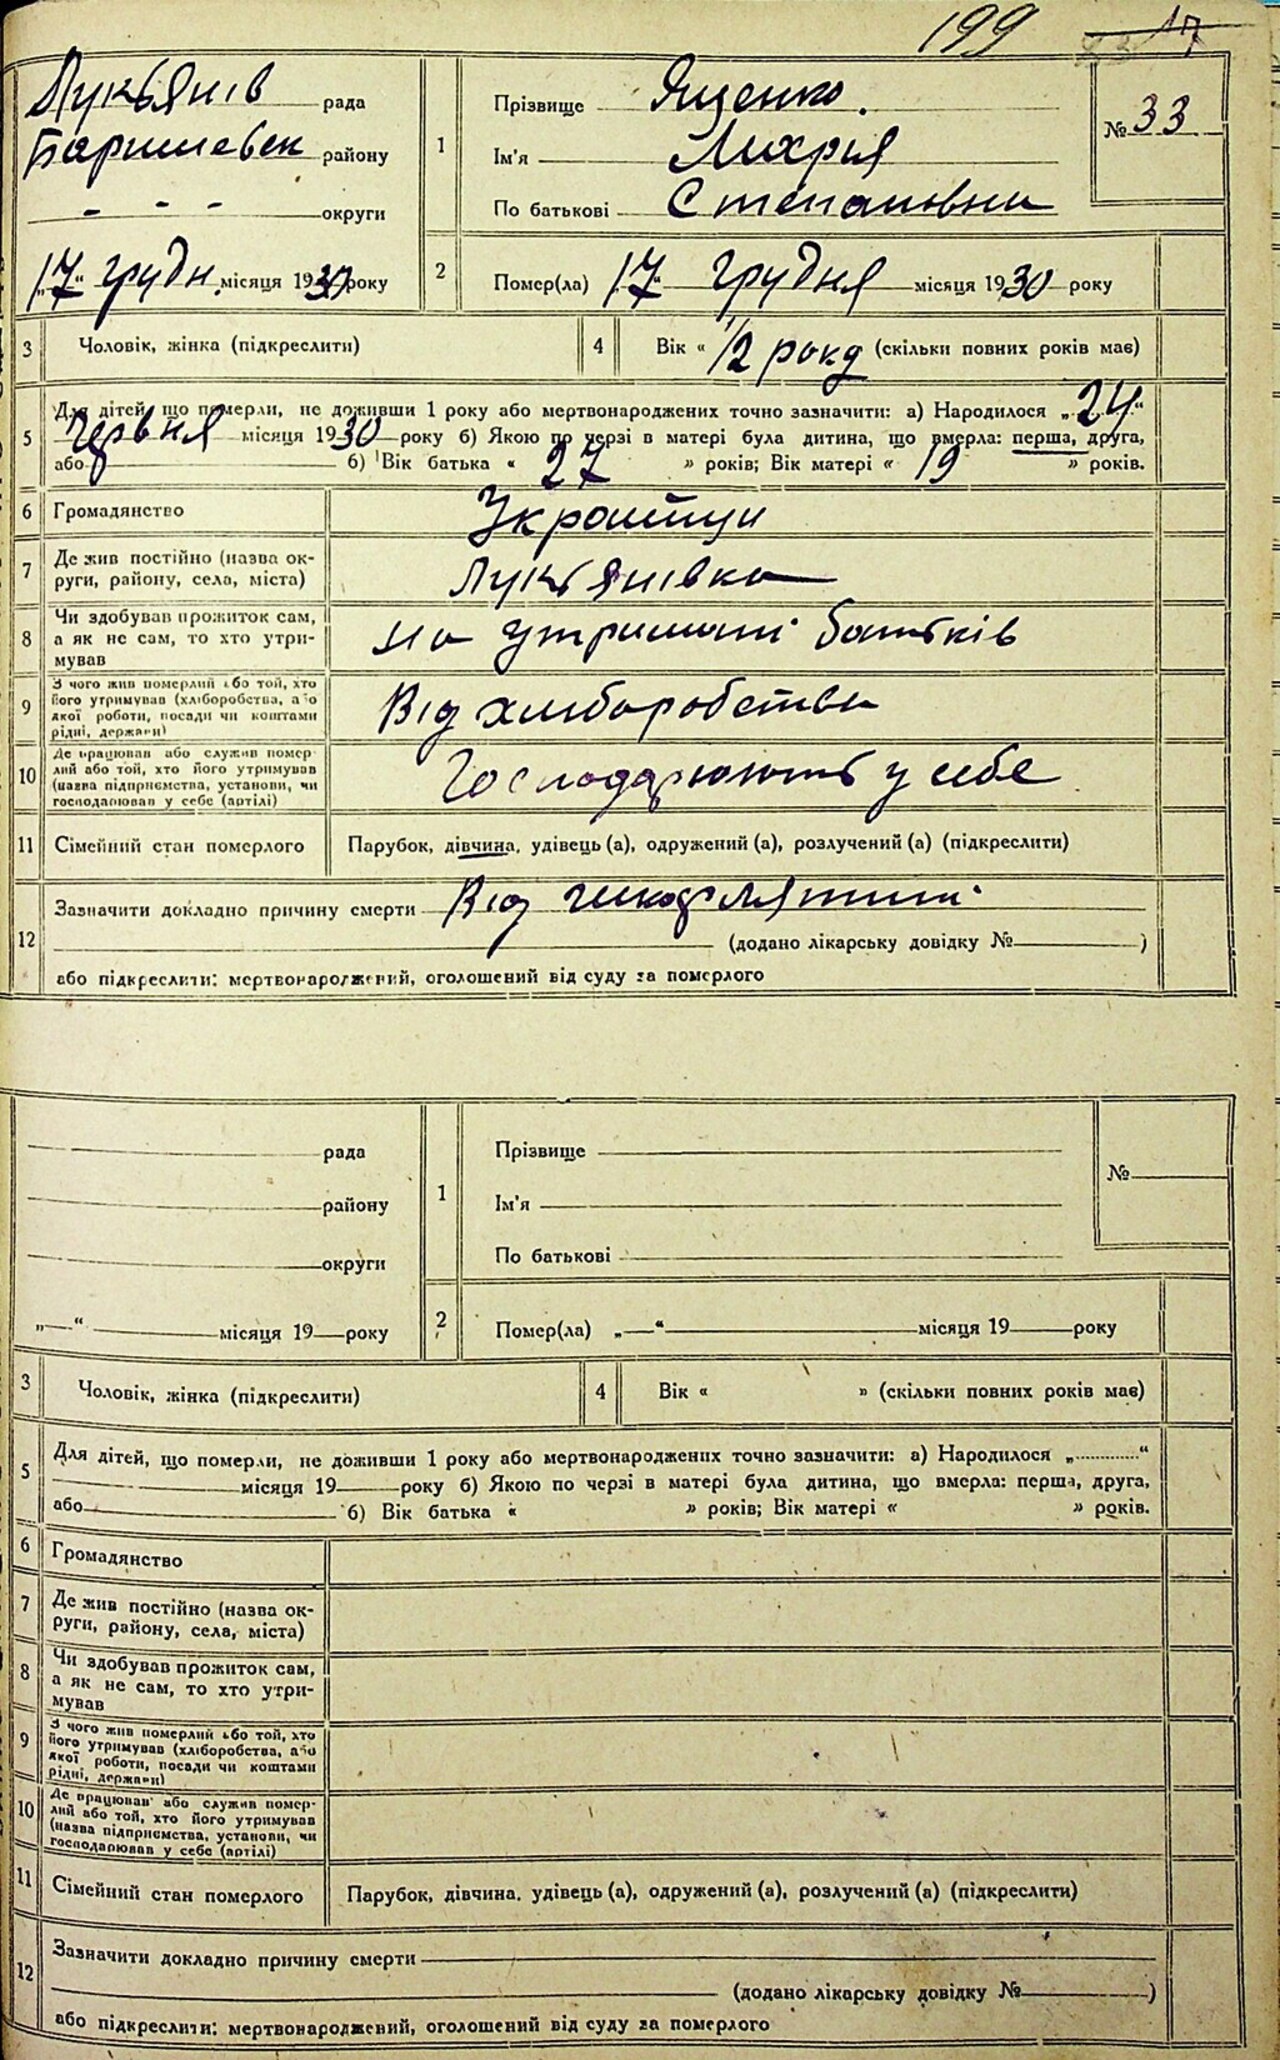 199 17
Лукьянів рада
Баришевск району
- - - округи
„17“ грудн. місяця 1930 року
1
Прізвище Ященко.
Ім'я Лихрия
По батькові Степановна
№ 33
2 Помер(ла) „17“ грудня місяця 1930 року
3 Чоловік, жінка (підкреслити)
4 Вік « 1/2 року (скільки повних років має)
5 Для дітей, що померли, не доживши 1 року або мертвонароджених точно зазначити: а) Народилося „24“
Червня місяця 1930 року б) Якою по черзі в матері була дитина, що вмерла: перша, друга,
або б) Вік батька « 27 » років; Вік матері « 19 » років.
6 Громадянство
7 Де жив постійно (назва ок-
руги, району, села, міста) Лукьянівка
8 Чи здобував прожиток сам,
а як не сам, то хто утри-
мував
на утримані батьків
9 З чого жив померлий або той, хто
його утримував (хліборобства, або
якої роботи, посади чи коштами
рідні, держави)
Від хліборобства
10 Де працював або служив помер-
лий або той, хто його утримував
(назва підприємства, установи, чи
господарював у себе (артілі)
Господарюють у себе
11 Сімейний стан померлого Парубок, дівчина, удівець (а), одружений (а), розлучений (а) (підкреслити)
12 Зазначити докладно причину смерти Від
(додано лікарську довідку № )
або підкреслити: мертвонароджений, оголошений від суду за померлого
рада
району
округи
„ “ місяця 19 року
1
Прізвище
Ім'я
По батькові
№
2 Помер(ла) „ “ місяця 19 року
3 Чоловік, жінка (підкреслити)
4 Вік « » (скільки повних років має)
5 Для дітей, що померли, не доживши 1 року або мертвонароджених точно зазначити: а) Народилося „ “
місяця 19 року б) Якою по черзі в матері була дитина, що вмерла: перша, друга,
або б) Вік батька « » років; Вік матері « » років.
6 Громадянство
7 Де жив постійно (назва ок-
руги, району, села, міста)
8 Чи здобував прожиток сам,
а як не сам, то хто утри-
мував
9 З чого жив померлий або той, хто
його утримував (хліборобства, або
якої роботи, посади чи коштами
рідні, держави)
10 Де працював або служив помер-
лий або той, хто його утримував
(назва підприємства, установи, чи
господарював у себе (артілі)
11 Сімейний стан померлого Парубок, дівчина, удівець (а), одружений (а), розлучений (а) (підкреслити)
12 Зазначити докладно причину смерти
(додано лікарську довідку № )
або підкреслити: мертвонароджений, оголошений від суду за померлого